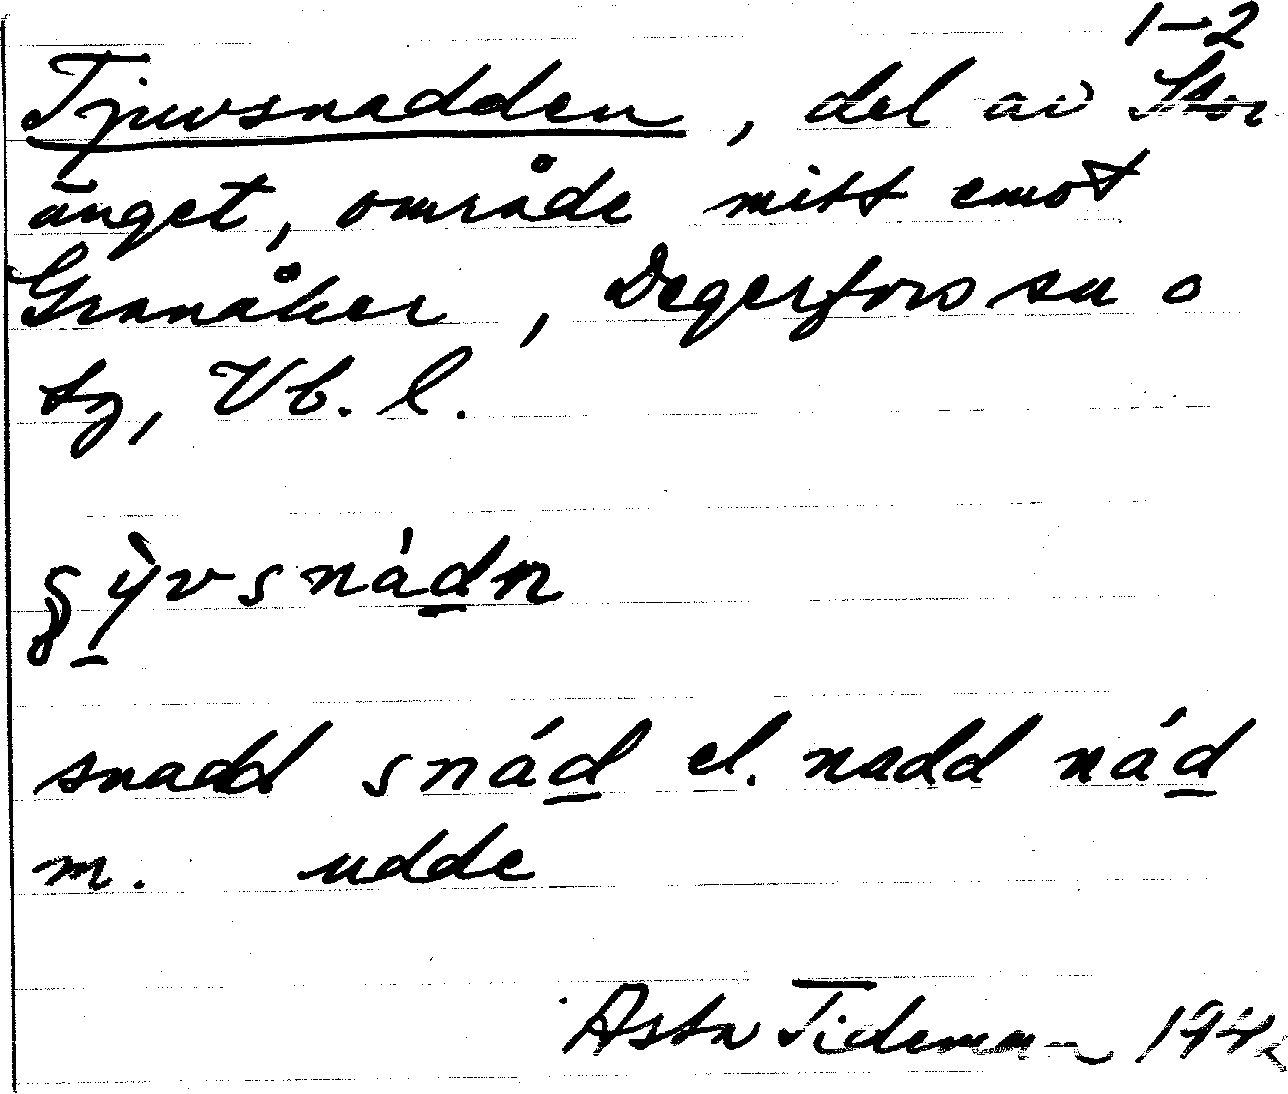 1-2
Tjuvsnadden, del av Stor
änget, område mitt emot
Granåker, Degerfors sn o
tg, Vb. l.
snadd snád el. nadd nád
m. udde
Asta Tideman